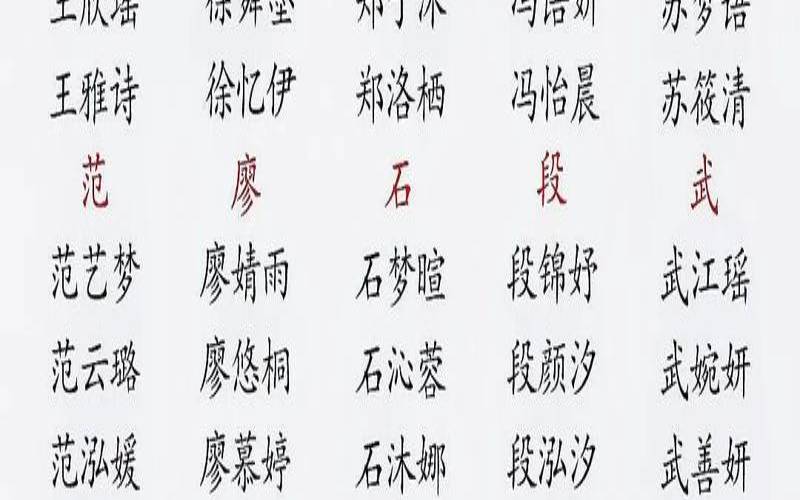 王欣瑶 徐舜堃 郑予沐 冯语妍 苏梦语
王雅诗 徐忆伊 郑洛栖 冯怡晨 苏筱清
范 廖 石 段 武
范艺梦 廖婧雨 石梦暄 段锦妤 武江瑶
范云璐 廖悠桐 石沁蓉 段颜汐 武婉妍
范泓媛 廖慕婷 石沐娜 段泓汐 武善妍